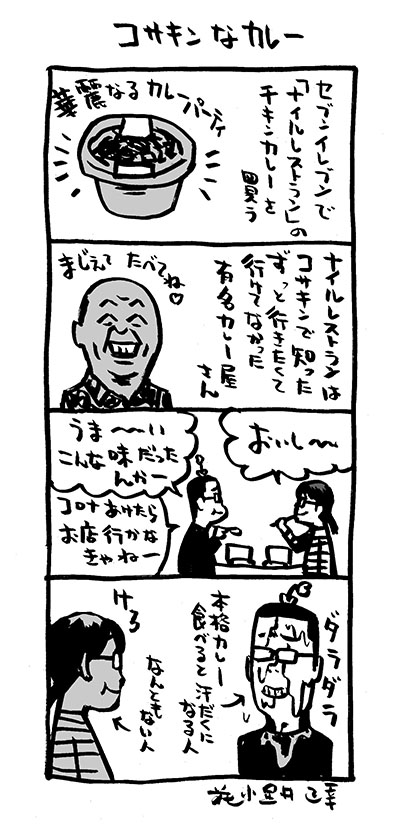 コサキンなカレー
セブンイレブンで
「ナイルレストラン」の
チキンカレーを
買う
華麗なるカレーパーティ
ナイルレストランは
コサキンで知った
ずっと行きたくて
行けてなかった
有名カレー屋
さん
まじぇて たべてね♡
おいし〜
うま〜〜い
こんな味だった
んかー
コロナあけたら
お店行かな
きゃねー
ダラダラ
本格カレー
食べると汗だくに
なる人
けろ
なんとも
ない人